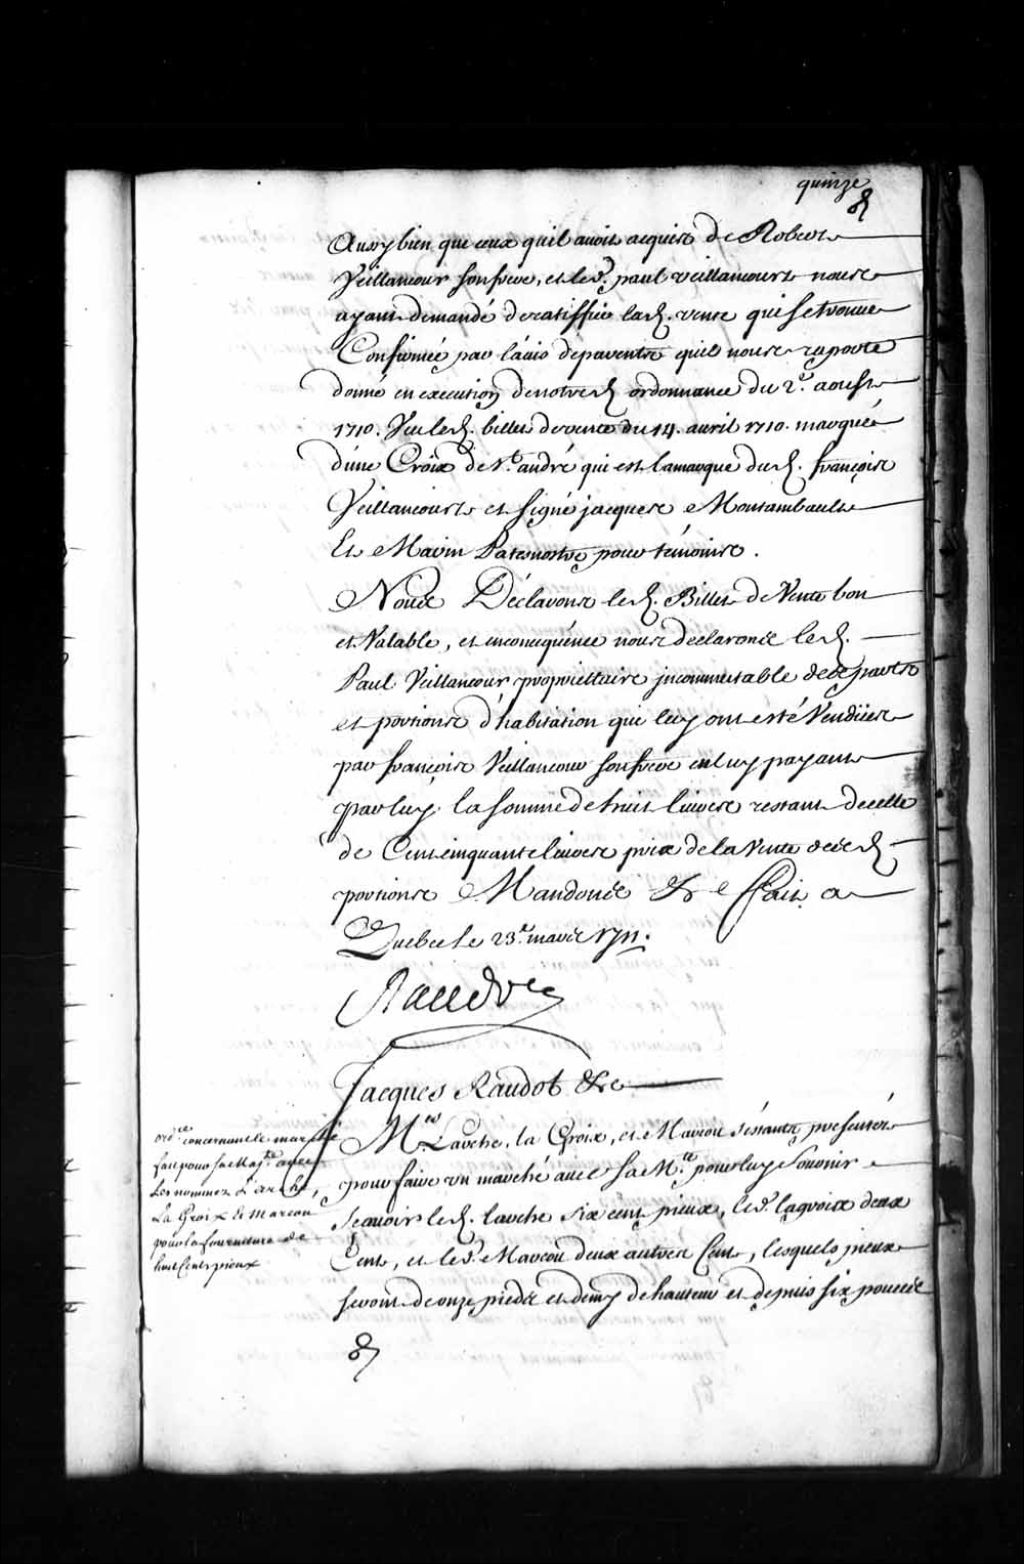 quinze
Aussy bien que ceux quil avoit acquis de Robert
Veillancour son frere, et le S.r paul veillancourt nous
ayant demandé de ratiffier lad. vente qui se trouve
Confirmée par l'avis de parents quil nous raporte
donné en execution de notred ordonnance du 2.e aoust
1710. Veu led. billet de vente du 14. avril 1710. marqué
d'une Croix de St. andré qui est la marque dud. françois
Veillancourt et signé jacques Montambault
Et Marin Patenostre pour témoins.
Nous Déclarons led. Billet de Vente bon
et Valable, et en consequence nous declarons led.
Paul Veillancour propriettaire jncommutable desd parts
et portions d'habitation qui luy ont esté Venduës
par françois Veillancour son frere en luy payant
par luy la somme de huit livres restant de celle
de Cent cinquante livres prix de la Vente desd
portions Mandons &c Fait a
Quebec le 23.e mars 1711.
Raudot
Jacques Raudot &c
ord.ce concernant le marché
fait pour sa Maj.té avec
Les nommez L'arché,
La Croix & Marcou
pour la fourniture de
huit Cents pieux
M.es Larche, la Croix, et Marcou s'estants presentés
pour faire un marché avec sa M.té pour luy fournir
Sçavoir led. larche six cent pieux, le S.r lacroix deux
Cent, et le S.r Marcou deux autres Cent, lesquels pieux
seront de onze pieds et demy de hauteur et depuis six pouces